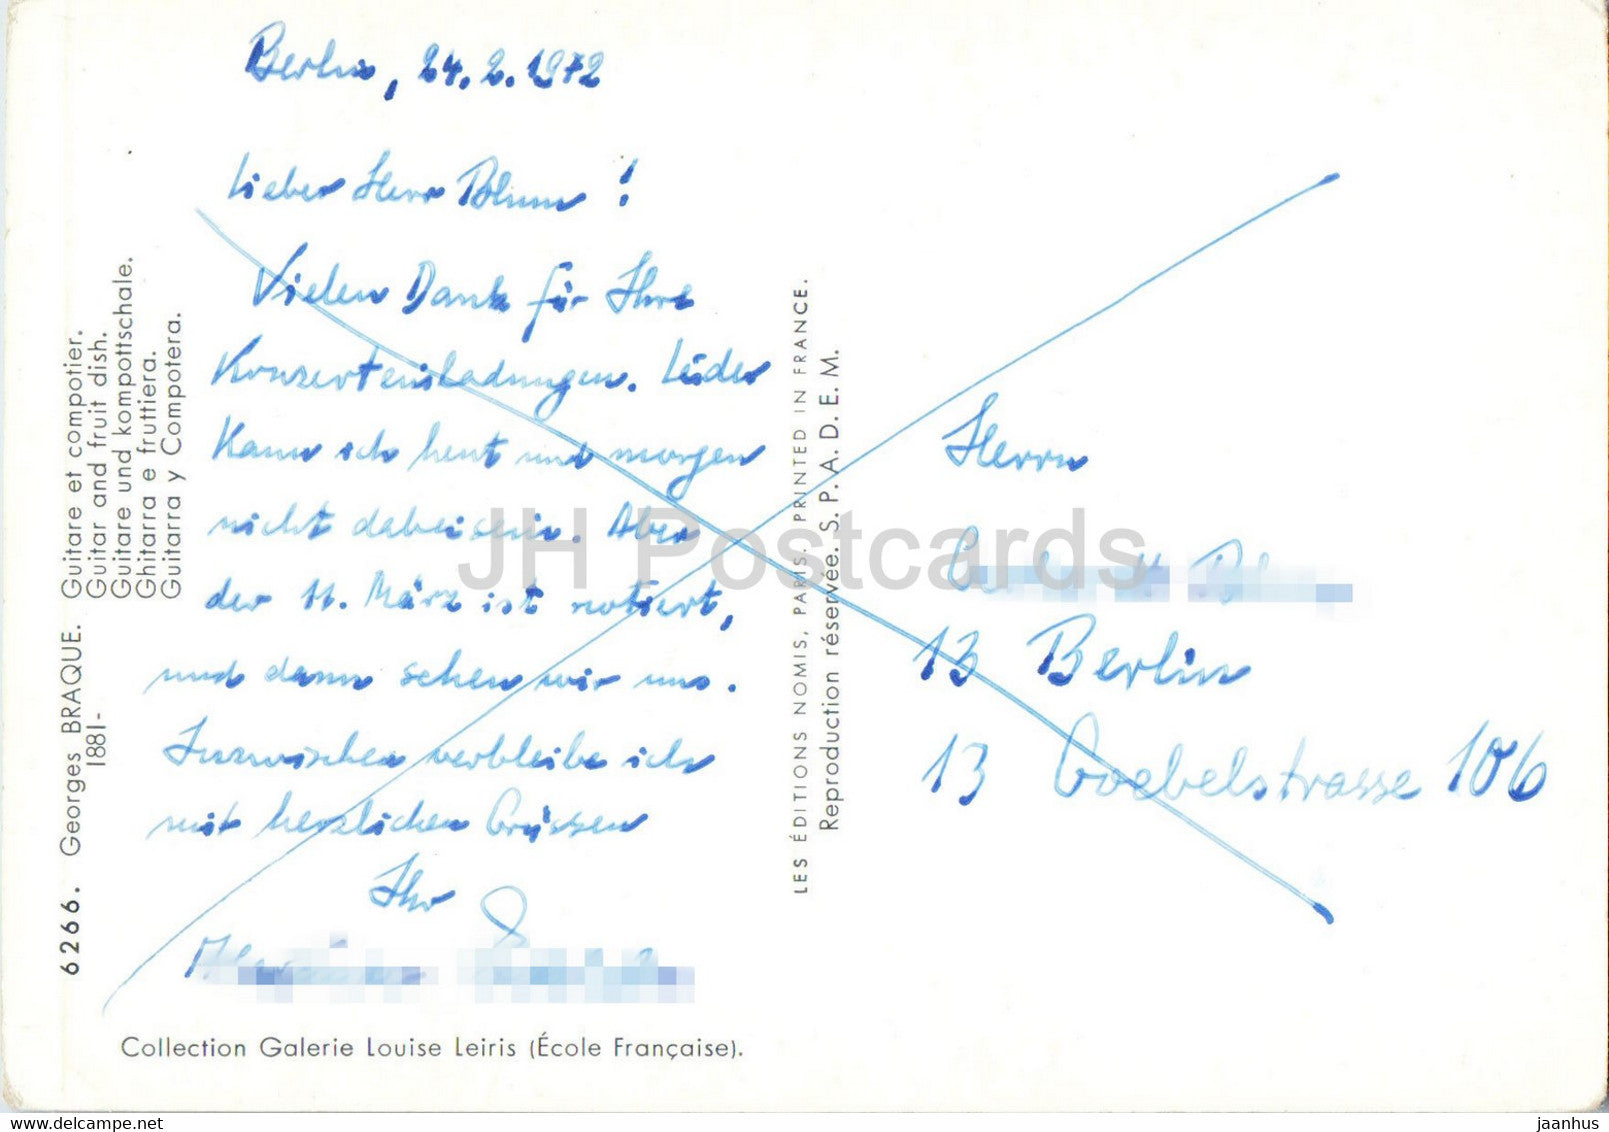 Berlin, 24.2.1972
Lieber Herr Blum!
Vielen Dank für Ihre
Konzerteinladungen. Leider
kann ich heut und morgen
nicht dabeisein. Aber
der 11. März ist notiert,
und dann sehen wir uns.
Inzwischen verbleibe ich
mit herzlichen Grüssen
Ihr
Herrn
13 Berlin
13 Goebelstrasse 106
6266. Georges BRAQUE. Guitare et compotier.
1881- Guitar and fruit dish.
Guitare und kompottschale.
Ghitarra e fruttiera.
Guitarra y Compotera.
LES ÉDITIONS NOMIS, PARIS. PRINTED IN FRANCE.
Reproduction réservée. S. P. A. D. E. M.
Collection Galerie Louise Leiris (École Française).
JH Postcards
jaanhus